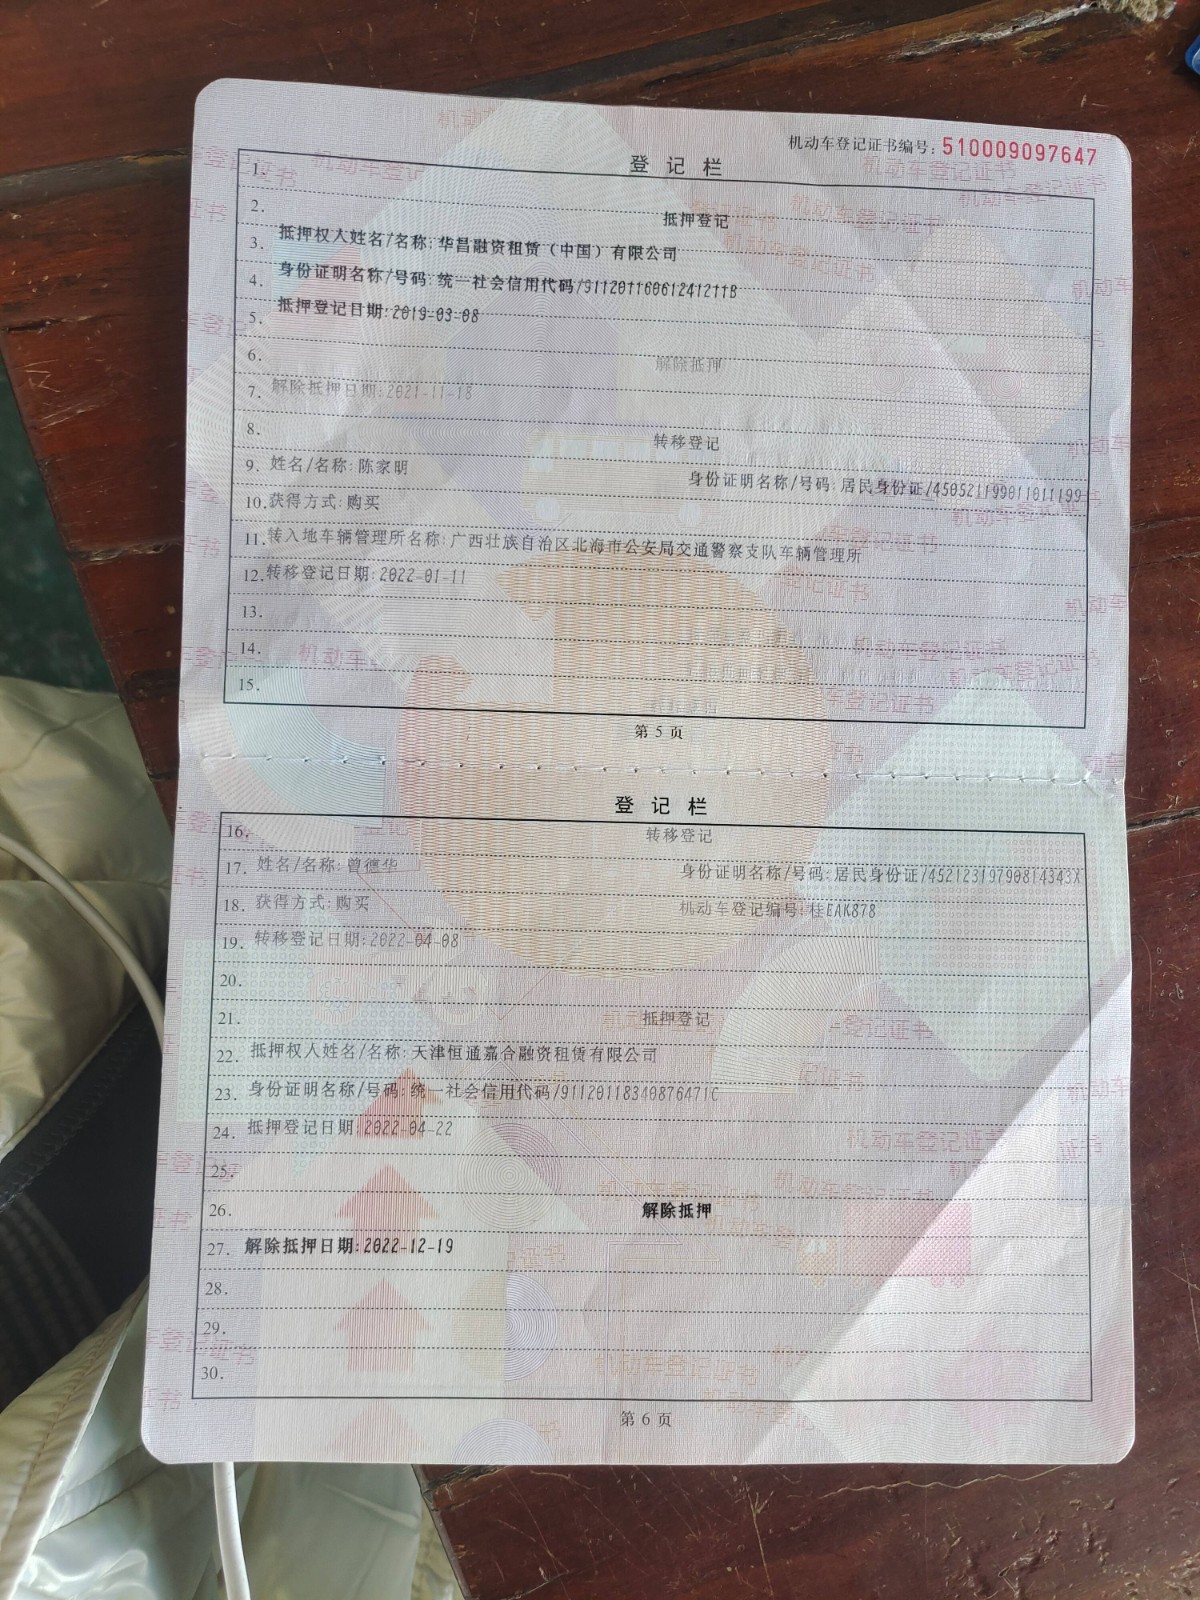 机动车登记证书编号: 510009097647
登记栏
1.
2. 抵押登记
3. 抵押权人姓名/名称: 华昌融资租赁（中国）有限公司
4. 身份证明名称/号码: 统一社会信用代码/91120116061241211B
5. 抵押登记日期: 2019-03-08
6. 解除抵押
7. 解除抵押日期: 2021-11-18
8. 转移登记
9. 姓名/名称: 陈家明 身份证明名称/号码: 居民身份证/450521199011011199
10. 获得方式: 购买
11. 转入地车辆管理所名称: 广西壮族自治区北海市公安局交通警察支队车辆管理所
12. 转移登记日期: 2022-01-11
13.
14.
15.
第 5 页
登记栏
16. 转移登记
17. 姓名/名称: 曾德华 身份证明名称/号码: 居民身份证/45212319790814343X
18. 获得方式: 购买 机动车登记编号: 桂EAK878
19. 转移登记日期: 2022-04-08
20.
21. 抵押登记
22. 抵押权人姓名/名称: 天津恒通嘉合融资租赁有限公司
23. 身份证明名称/号码: 统一社会信用代码/91120118340876471C
24. 抵押登记日期: 2022-04-22
25.
26. 解除抵押
27. 解除抵押日期: 2022-12-19
28.
29.
30.
第 6 页